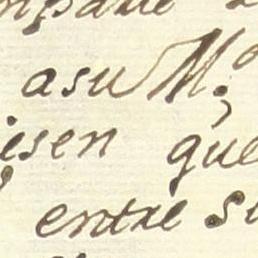 asu M.º
isen que
entre si